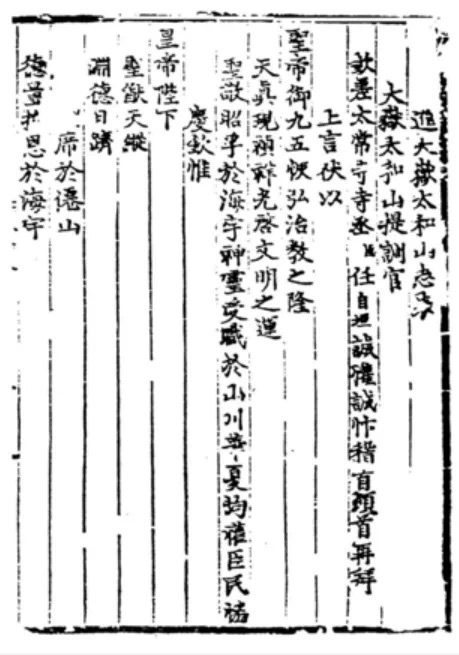 進大嶽太和山志表
大嶽太和山提調官
欽差太常寺寺丞臣任自垣誠懽誠忭稽首頓首再拜
上言伏以
聖帝御九五祼弘治教之隆
天真現禎祥光啓文明之運
聖敬昭孚於海宇神靈受職於山川華夏均禧臣民協
慶欽惟
皇帝陛下
聖猷天縱
淵德日躋
席於僊山
德普於恩於海宇